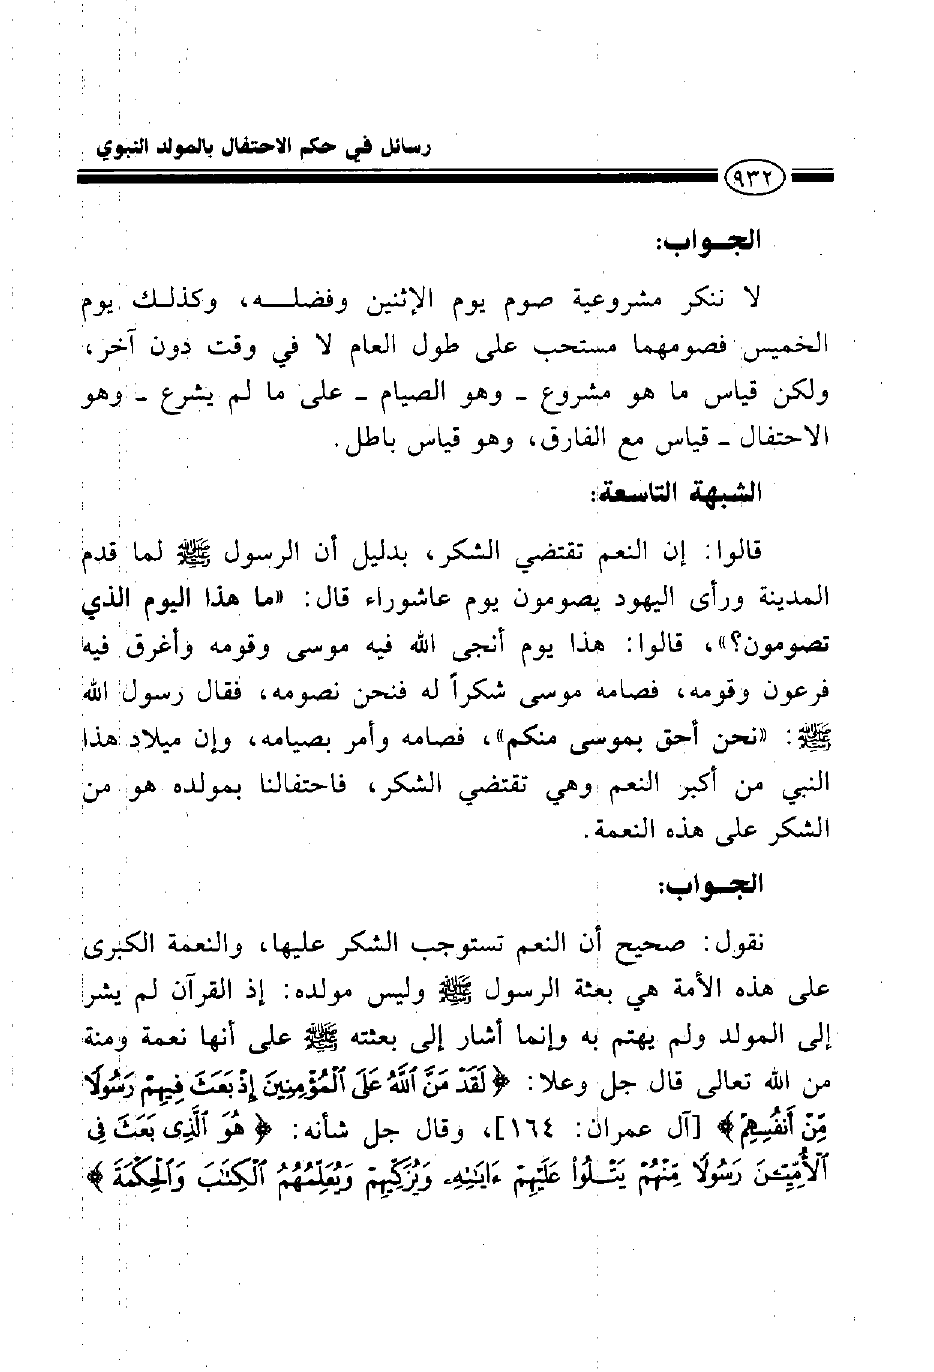 رسائل في حكم الاحتفال بالمولد النبوي
٩٣٢
الجـواب:
لا ننكر مشروعية صوم يوم الإثنين وفضلـه، وكذلـك يوم
الخميس فصومهما مستحب على طول العام لا في وقت دون آخر،
ولكن قياس ما هو مشروع ـ وهو الصيام ـ على ما لم يشرع ـ وهو
الاحتفال ـ قياس مع الفارق، وهو قياس باطل.
الشبهة التاسعة:
قالوا: إن النعم تقتضي الشكر، بدليل أن الرسول ﷺ لما قدم
المدينة ورأى اليهود يصومون يوم عاشوراء قال: «ما هذا اليوم الذي
تصومون؟»، قالوا: هذا يوم أنجى الله فيه موسى وقومه وأغرق فيه
فرعون وقومه، فصامه موسى شكراً له فنحن نصومه، فقال رسول الله
ﷺ: «نحن أحق بموسى منكم»، فصامه وأمر بصيامه، وإن ميلاد هذا
النبي من أكبر النعم وهي تقتضي الشكر، فاحتفالنا بمولده هو من
الشكر على هذه النعمة.
الجـواب:
نقول: صحيح أن النعم تستوجب الشكر عليها، والنعمة الكبرى
على هذه الأمة هي بعثة الرسول ﷺ وليس مولده: إذ القرآن لم يشر
إلى المولد ولم يهتم به وإنما أشار إلى بعثته ﷺ على أنها نعمة ومنة
من الله تعالى قال جل وعلا: ﴿لَقَدْ مَنَّ ٱللَّهُ عَلَى ٱلْمُؤْمِنِينَ إِذْ بَعَثَ فِيهِمْ رَسُولًا
مِّنْ أَنفُسِهِمْ﴾ [آل عمران: ١٦٤]، وقال جل شأنه: ﴿هُوَ ٱلَّذِى بَعَثَ فِى
ٱلْأُمِّيِّـۧنَ رَسُولًا مِّنْهُمْ يَتْلُوا۟ عَلَيْهِمْ ءَايَـٰتِهِۦ وَيُزَكِّيهِمْ وَيُعَلِّمُهُمُ ٱلْكِتَـٰبَ وَٱلْحِكْمَةَ﴾